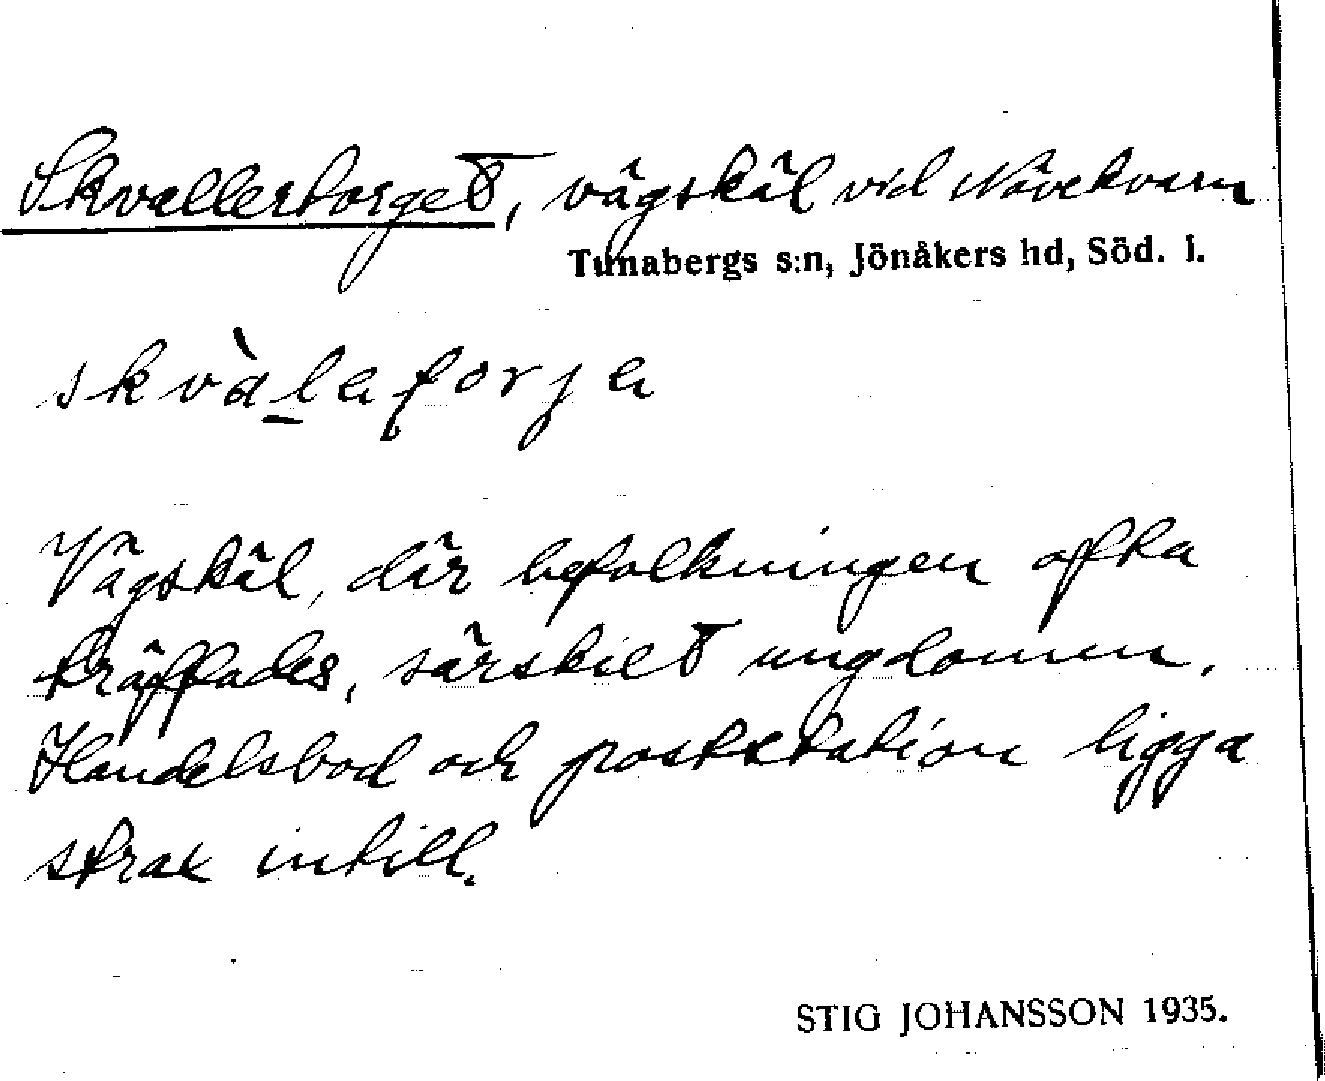 Skvallertorget, vägskäl vid Nävekvarn
Tunabergs s:n, Jönåkers hd, Söd. l.
skvàlatorja
Vägskäl, där befolkningen ofta
träffades, särskilt ungdomen.
Handelsbod och poststation ligga
strax intill.
STIG JOHANSSON 1935.